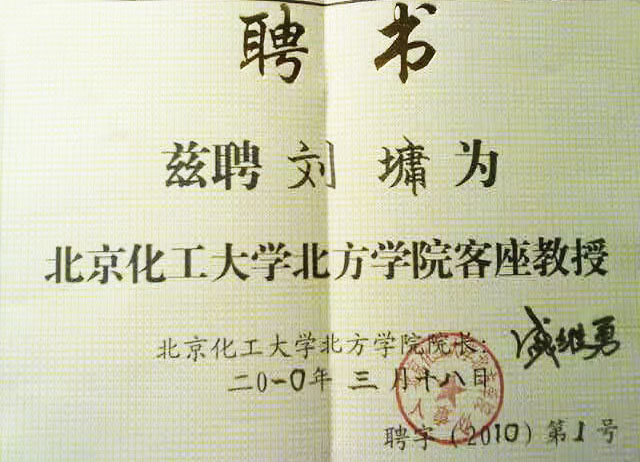 聘书
兹聘 刘墉 为
北京化工大学北方学院客座教授
北京化工大学北方学院院长：盛继勇
二〇一〇年三月十八日
聘字（2010）第1号